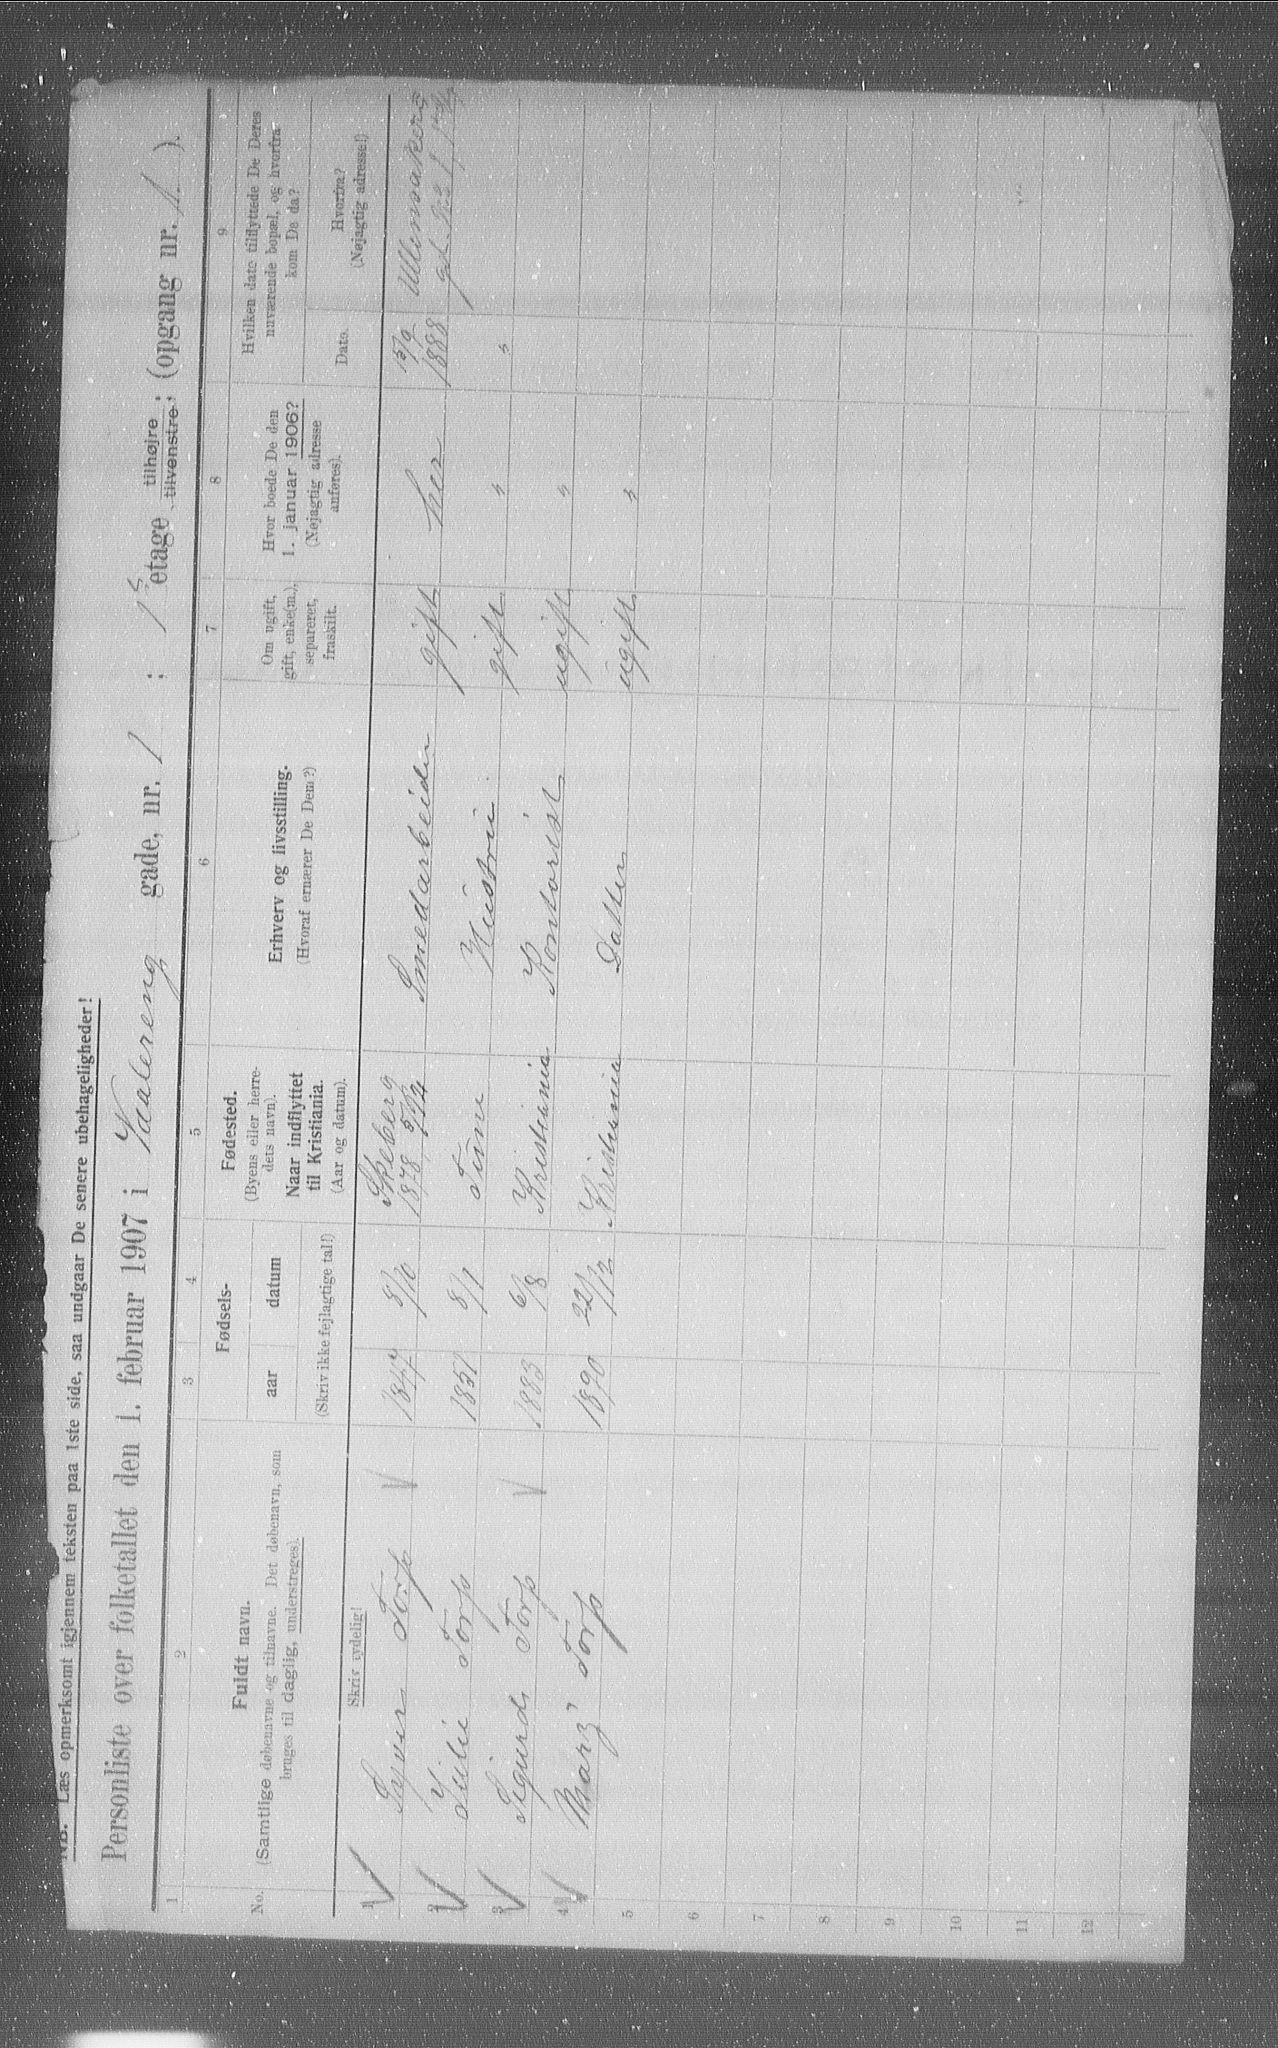 NB. Læs opmerksomt igjennem teksten paa 1ste side, saa undgaar De senere ubehageligheder!
Personliste over folketallet den 1. februar 1907 i Vaalereng gade, nr. 1 ; 1 etage tilhøjre tilvenstre; (opgang nr. 1.).
1 2 3 4 5 6 7 8 9
No.
Fuldt navn.
(Samtlige døbenavne og tilnavne. Det døbenavn, som
bruges til daglig, understreges).
Skriv tydelig!
Fødsels-
aar datum
(Skriv ikke fejlagtige tal!)
Fødested.
(Byens eller herre-
dets navn).
Naar indflyttet
til Kristiania.
(Aar og datum).
Erhverv og livsstilling.
(Hvoraf ernærer De Dem?)
Om ugift,
gift, enke(m.),
separeret,
fraskilt.
Hvor boede De den
1. januar 1906?
(Nøjagtig adresse
anføres).
Hvilken dato tilflyttede De Deres
nuværende bopæl, og hvorfra
kom De da?
Dato.
Hvorfra?
(Nøjagtig adresse!)
1 Syver Torp 1847 8/10 Skeberg 1878 5/14 Smedarbeider gift her 15/9 1888
2 Julie Torp 1851 8/1 Hustru gift " "
3 Sigurd Torp 1883 6/8 Kristiania Kontorist ugift "
4 Mary Torp 1890 22/12 Kristiania Datter ugift "
5
6
7
8
9
10
11
12